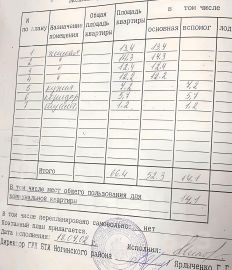 N по плану | Назначение помещения | Общая площадь квартиры | Площадь квартиры | в том числе
основная | вспомог
1 | жилая | 13.4 | 13.4
2 | " | 14.3 | 14.3
3 | " | 12.4 | 12.4
4 | " | 12.2 | 12.2
5 | кухня | 7.2 | 7.2
6 | коридор | 5.7 | 5.7
7 | туалет | 1.2 | 1.2
Итого | 66.4 | 52.3 | 14.1
В том числе мест общего пользования для
коммунальной квартиры | 14.1
в том числе перепланировано самовольно: нет
Поэтажный план прилагается.
Дата исполнения: Исполнил:
Директор ГУП БТИ Ногинского района